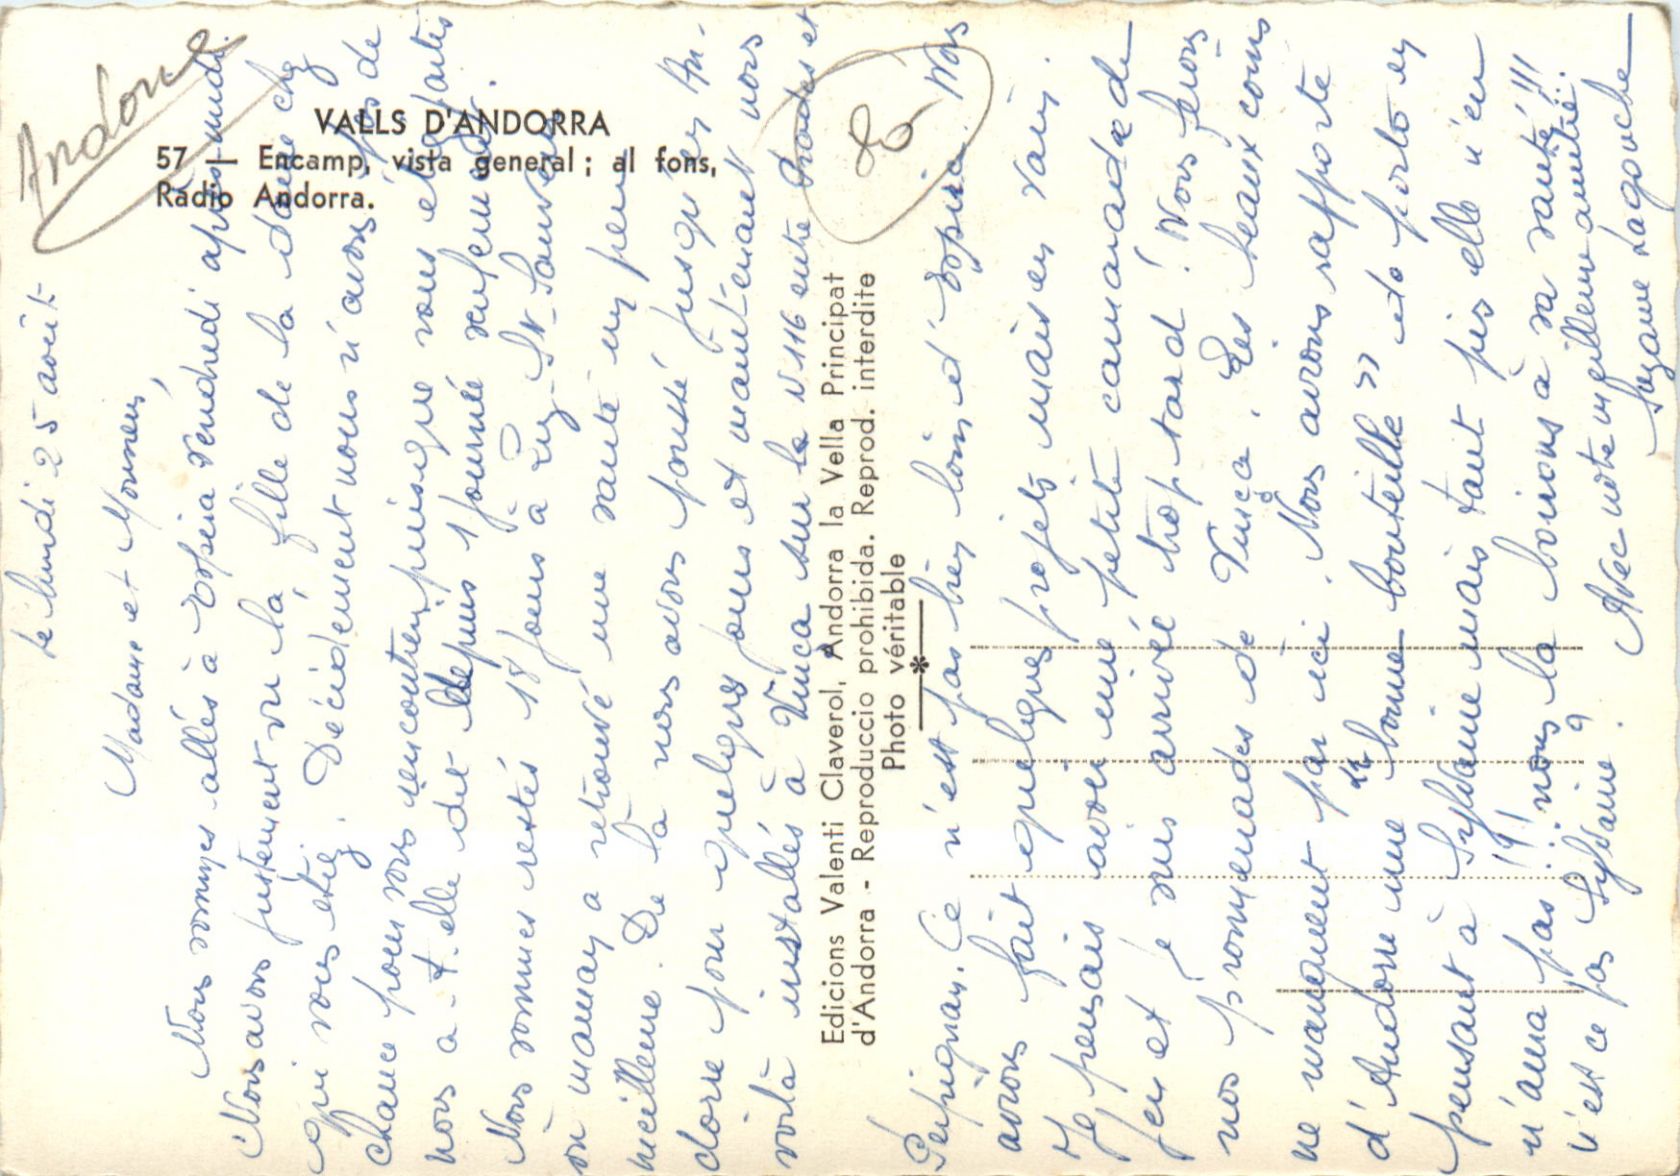 Andorre
20
VALLS D'ANDORRA
57 — Encamp, vista general ; al fons,
Ràdio Andorra.
Edicions Valenti Claverol, Andorra la Vella Principat
d'Andorra - Reproduccio prohibida. Reprod. interdite
Photo véritable
Le lundi 25 août
Madame et Monsieur,
Nous sommes allés à Espira vendredi après midi.
Nous avons justement vu là fille de la dame chez
qui vous etiez. Décidément nous n'avons pas de
chance pour nous rencontrer puisque vous etes partis
nous a-t-elle dit depuis 1 journée seulement.
Nous sommes restés 18 jours à Luz-St-Sauveur
où maman a retrouvé une santé un peu
meilleure. De là nous avons poussé jusqu'en An-
dorre pour quelques jours et maintenant nous
voilà installés à Vinça sur la N 116 entre Prades et
Perpignan. Ce n'est pas bien loin d'Espira. Nous
avons fait quelques projets mais en vain.
Je pensais avoir une petite camarade de
jeu et je suis arrivée trop tard ! Nous ferons
nos promenades de Vinça. Les beaux coins
ne manquent par ici. Nous avons rapporté
d'Andorre une " bonne bouteille " de porto en
pensant à Sylvaine mais tant pis elle n'en
n'aura pas !!! nous la boirons à sa santé !!!
n'est ce pas Sylvaine ? Avec notre meilleure amitié.
Lagouche